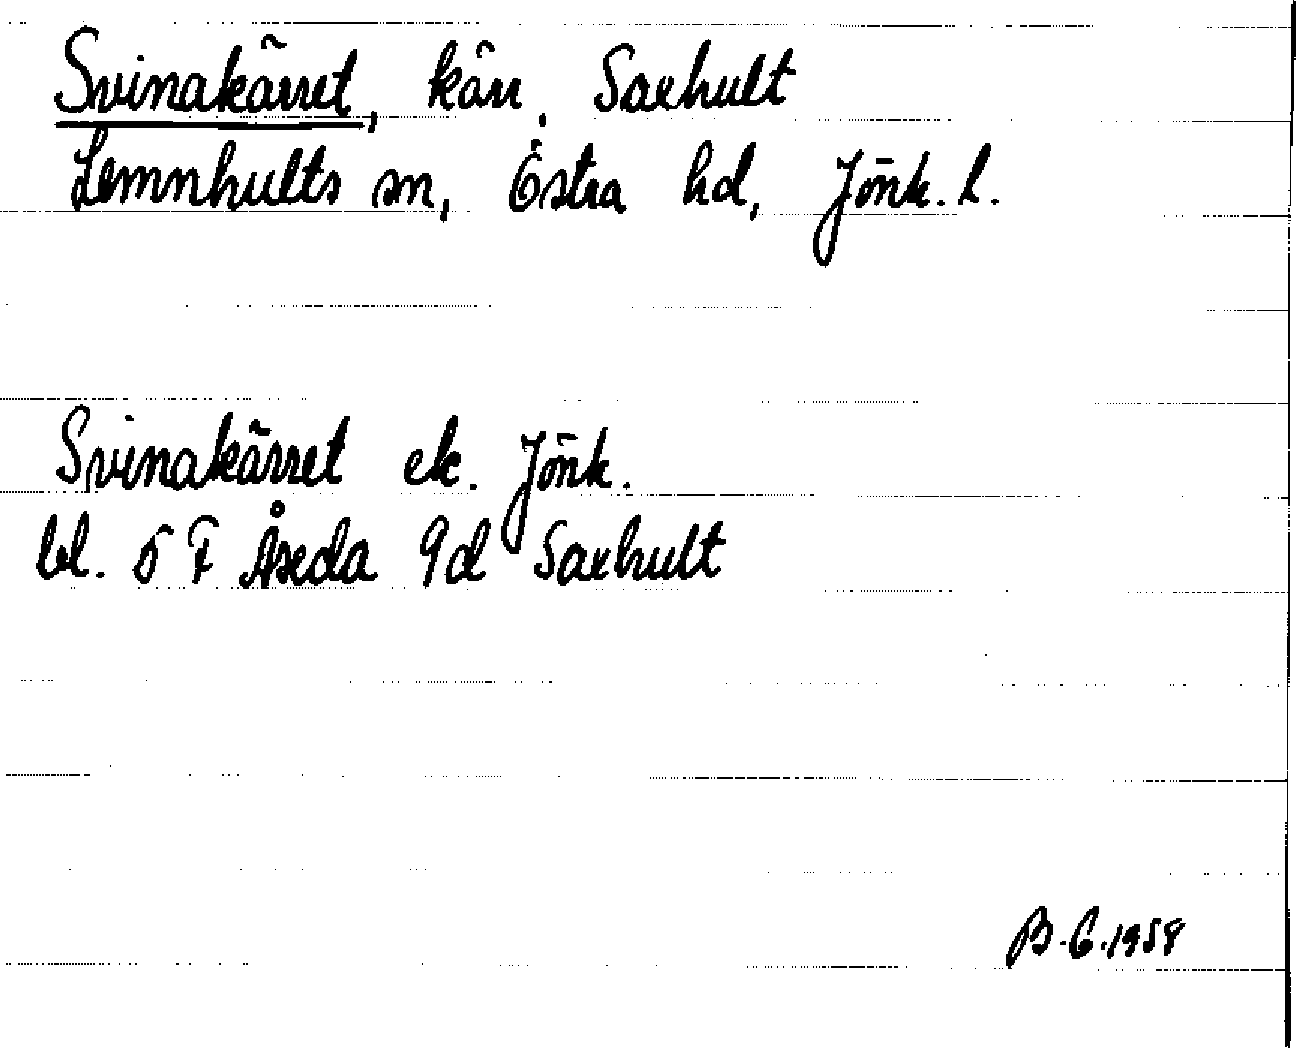 Svinakärret, kärr. Saxhult
Lemnhults sn, Östra hd, Jönk. l.
Svinakärret ek. Jönk.
bl. 5 F Åseda 9d Saxhult
B.G. 1958